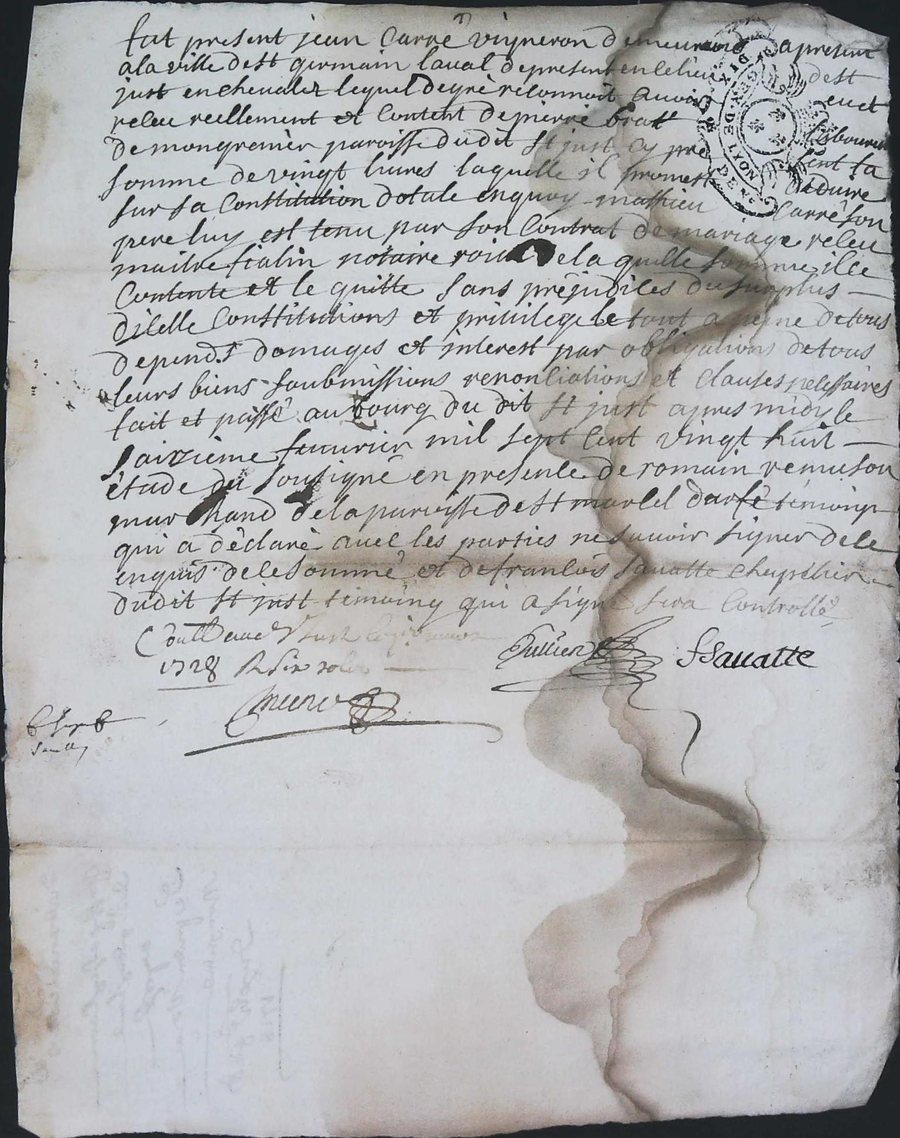 fut present jean Carré vigneron demeurant apresent
a la ville de st germain laval de present en ce lieu dest
just en chevalet lequel de gré reconnoit avoir eu et
receu reellement et Content de pierre bratt laboureur
de mongrenier paroisse dudit st just cy present la
somme de vingt livres laquelle il promet deduire
sur sa Constitution dotale enquoy mathieu Carré son
pere luy est tenu par son Contrat de mariage receu
maitre fialin notaire roial de la quelle somme il se
Contente et le quitte sans prejudices du surplus
dicelle Constitutions et privilege le tout a peine de tous
depends domages et interest par obligations de tous
leurs biens soubmissions renonciations et clauses necessaires
fait et passé au bourg du dit st just apres midy le
saizieme fevurier mil sept cent vingt huit
étude du sousigné en presence de romain remuson
marchand de la paroisse de st marcel durfé témoing
qui a déclaré avec les parties ne savoir signer de ce
enquis de ce sommé et de francois sauatte
dudit st just temoing qui a signé sera Controllé
Jullien fsauatte
1728 R six sols
GEN DE LYON